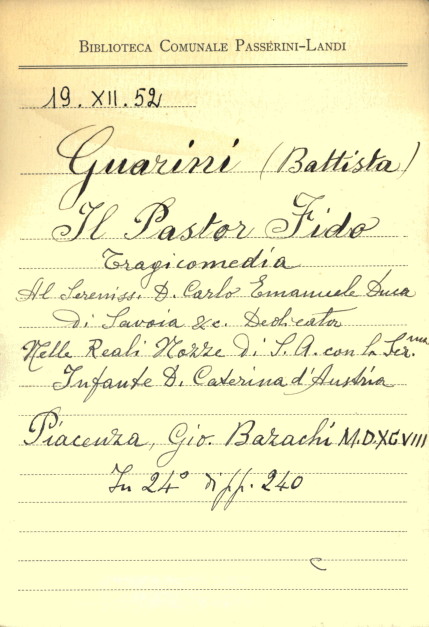 BIBLIOTECA COMUNALE PASSERINI-LANDI
19. XII. 52
Guarini (Battista)
Il Pastor Fido
Tragicomedia
Al Sereniss. D. Carlo Emanuele Duca
di Savoia &c. Dedicata
Nelle Reali Nozze di S. A. con la Ser.ma
Infante D. Caterina d'Austria
Piacenza, Gio. Bazachi M.D.XCVIII
In 24° di pp. 240